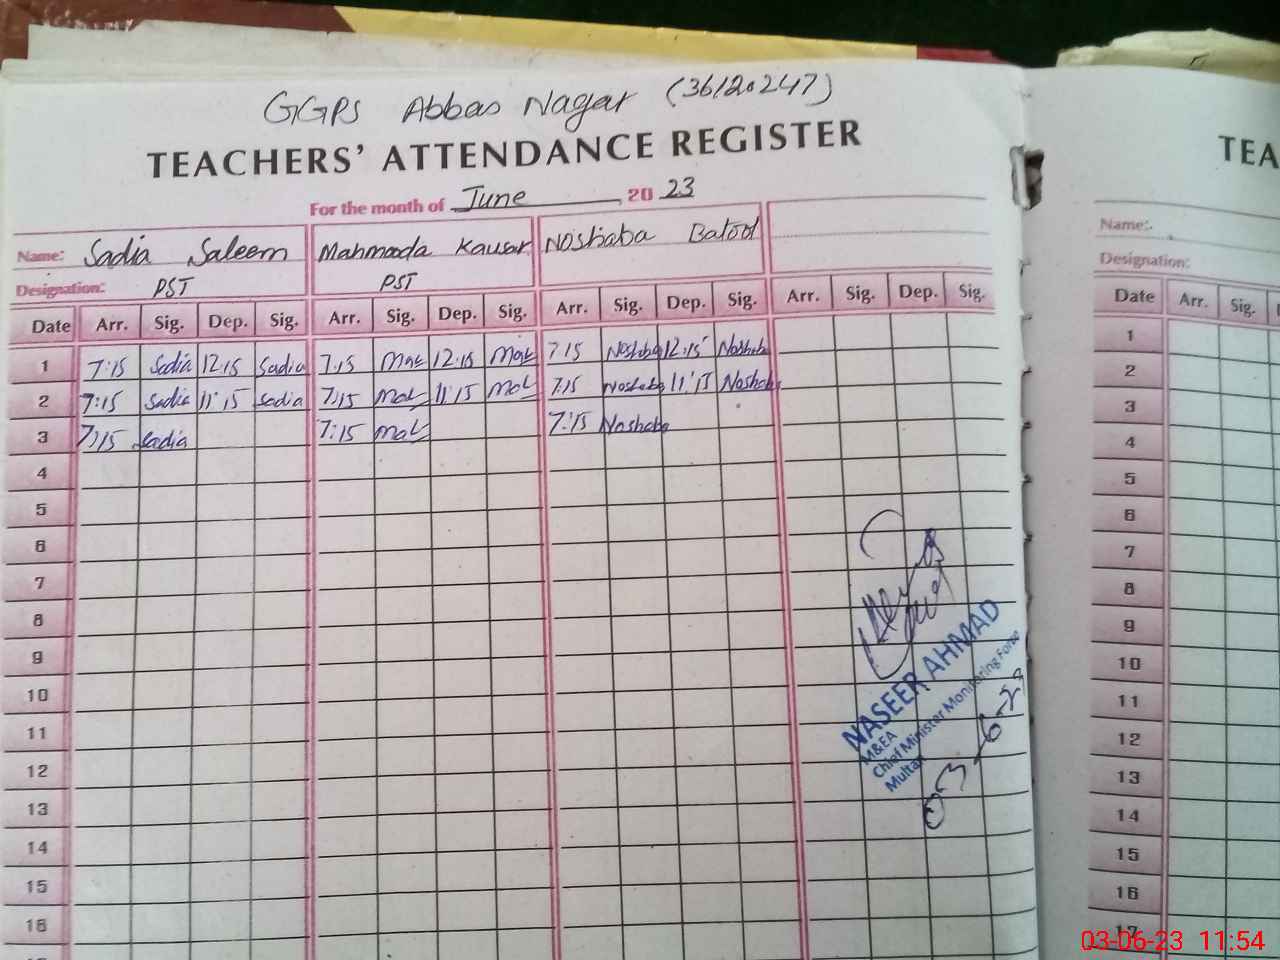 GGPS Abbas Nagar (36120247)
TEACHERS' ATTENDANCE REGISTER
For the month of June 2023
Name: Sadia Saleem Mahmooda Kausar Noshaba Batool
Designation: PST PST
Date Arr. Sig. Dep. Sig. Arr. Sig. Dep. Sig. Arr. Sig. Dep. Sig. Arr. Sig. Dep. Sig.
1 7:15 Sadia 12:15 Sadia 7:15 12:15 7:15 Noshaba 12:15 Noshaba
2 7:15 Sadia 11:15 Sadia 7:15 11:15 7:15 Noshaba 11:15 Noshaba
3 7:15 Sadia 7:15 7:15 Noshaba
4
5
6
7
8
9
10
11
12
13
14
15
16
NASEER AHMAD
M&EA
Chief Minister Monitoring Force
Multan
03-6-23
TEA
Name:
Designation:
Date Arr. Sig.
1
2
3
4
5
6
7
8
9
10
11
12
13
14
15
16
17
03-06-23 11:54